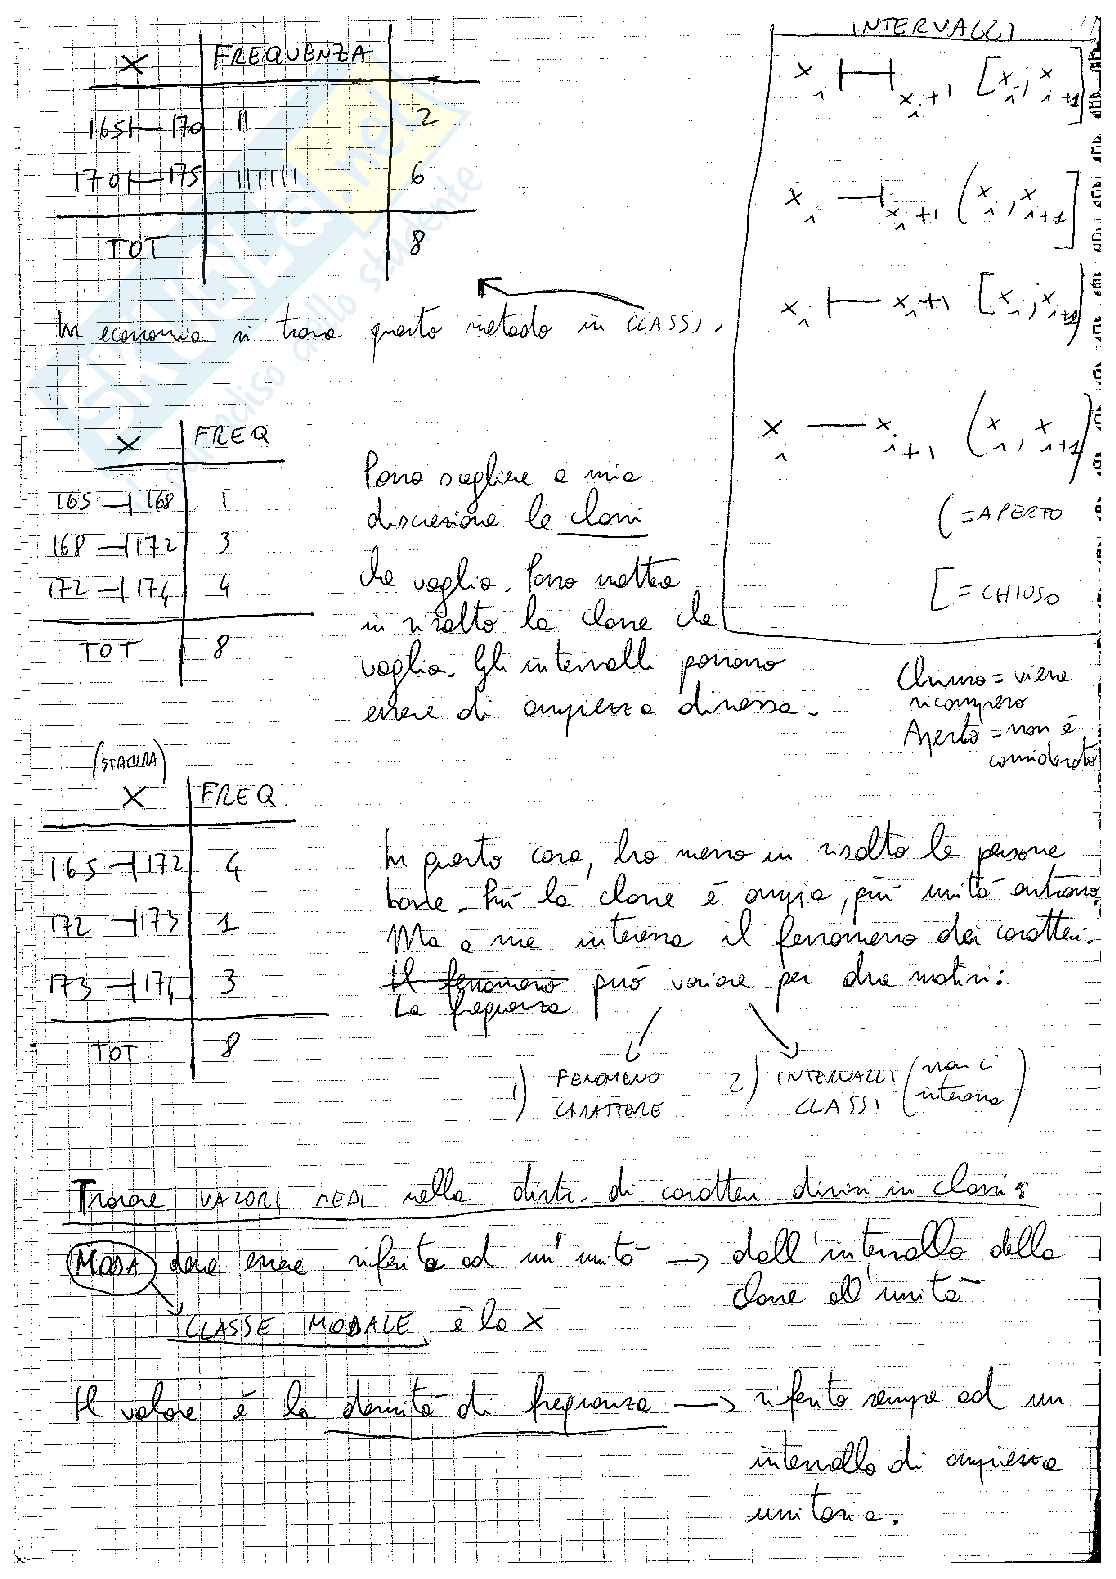 X | FREQUENZA
165 ⊢ 170 | II | 2
170 ⊢ 175 | IIIIII | 6
TOT | 8
In economia si trova questo metodo in CLASSI.
INTERVALLI
x_i ⊢⊣ x_i+1 [x_i; x_i+1]
x_i —⊣ x_i+1 (x_i; x_i+1]
x_i ⊢— x_i+1 [x_i; x_i+1)
x_i — x_i+1 (x_i; x_i+1)
( = APERTO
[ = CHIUSO
Chiuso = viene
ricompreso
Aperto = non è
considerato
X | FREQ
165 ⊣ 168 | 1
168 ⊣ 172 | 3
172 ⊣ 174 | 4
TOT | 8
Posso scegliere a mia
discrezione le classi
che voglio. Posso mettere
in risalto la classe che
voglio. Gli intervalli possono
essere di ampiezza diversa.
(STATURA)
X | FREQ
165 ⊣ 172 | 4
172 ⊣ 173 | 1
173 ⊣ 174 | 3
TOT | 8
In questo caso, ho messo in risalto le persone
basse. Più la classe è ampia, più unità entrano.
Ma a me interessa il fenomeno dei caratteri.
Il fenomeno può variare per due motivi:
La frequenza
1) FENOMENO
CARATTERE
2) INTERVALLI (non ci
CLASSI interessa)
Trovare VALORI MEDI nella distr. di caratteri divisi in classi:
MODA deve essere riferita ad un'unità → dall'intervallo della
classe all'unità
CLASSE MODALE è la X
Il valore è la densità di frequenza → riferito sempre ad un
intervallo di ampiezza
unitaria.